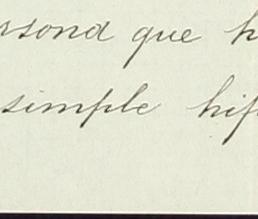 rsond que h
simple hip